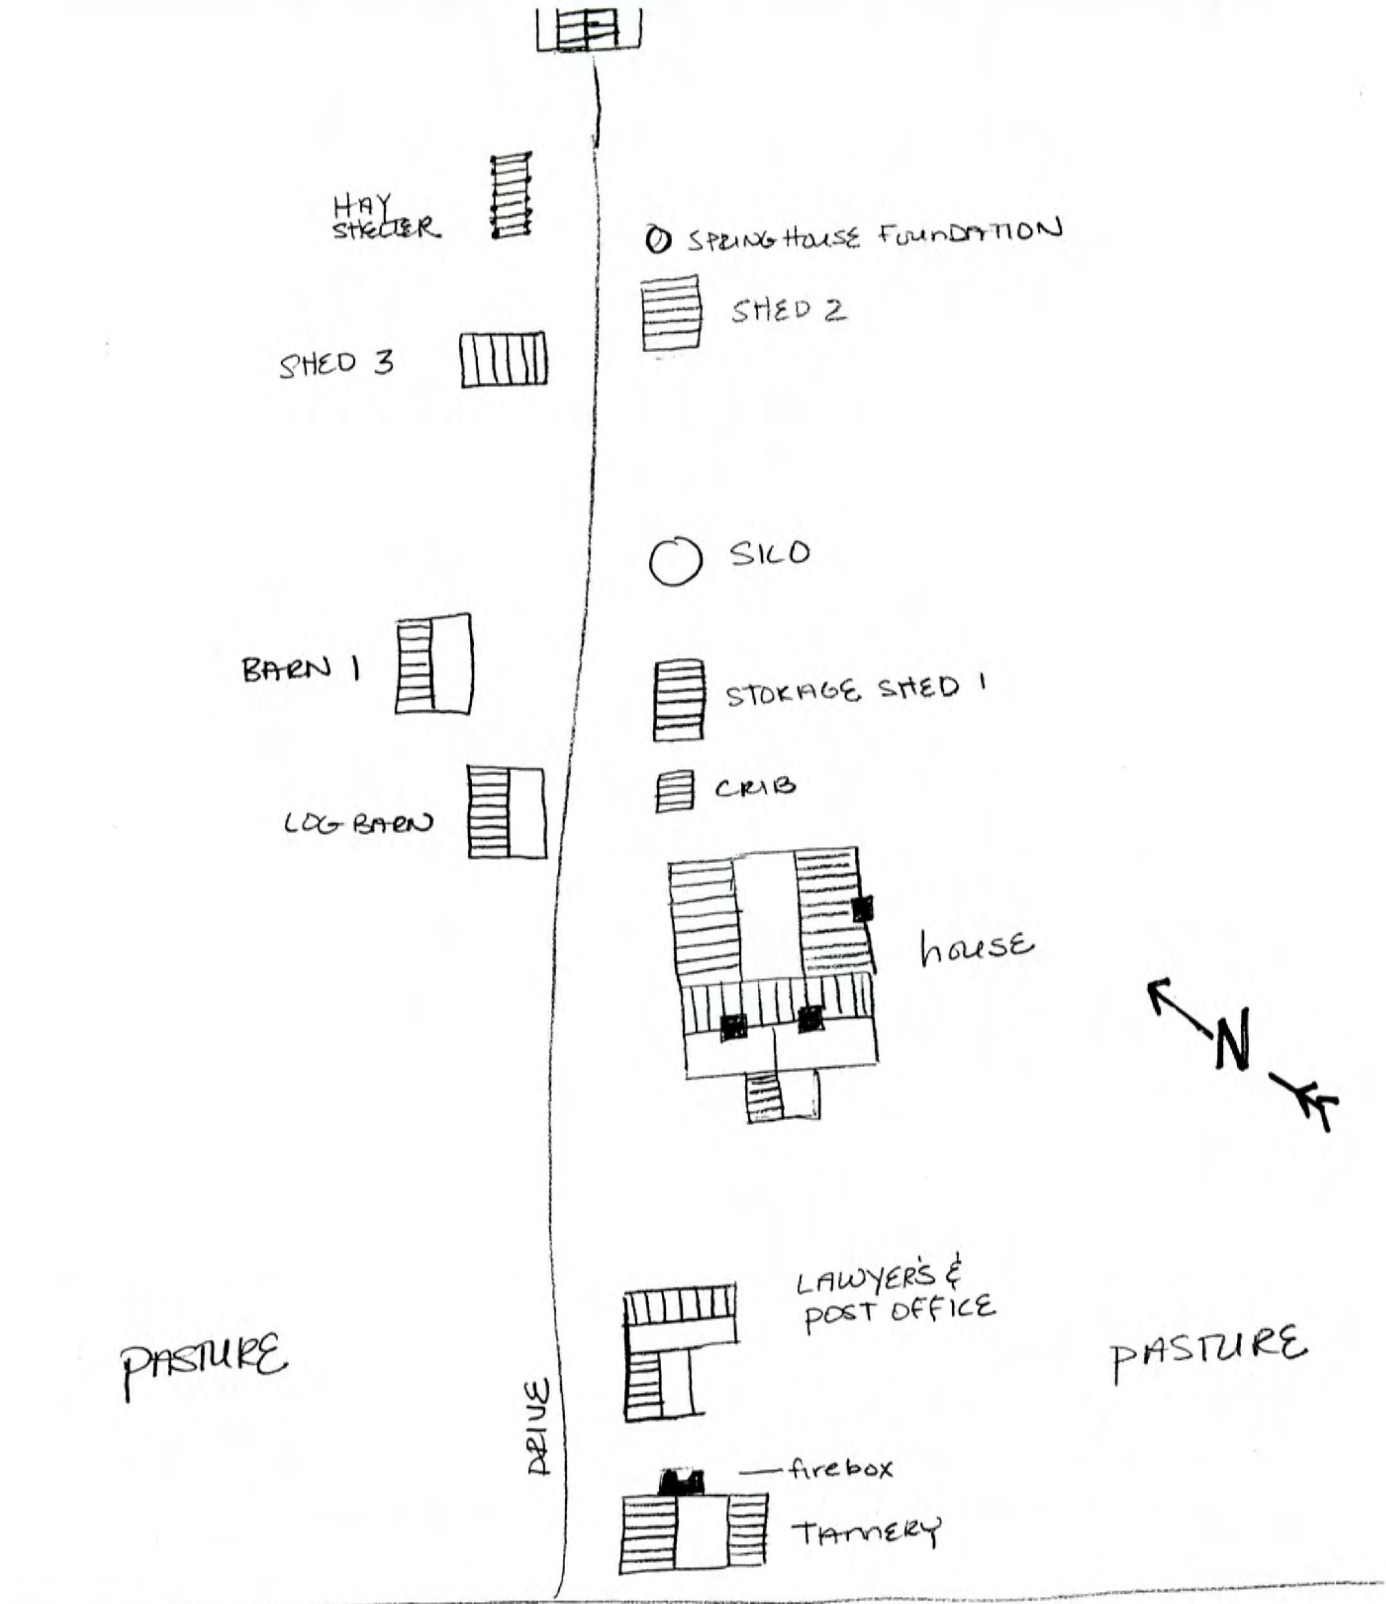 HAY
SHELTER
SPRING HOUSE FOUNDATION
SHED 2
SHED 3
SILO
BARN 1
STORAGE SHED 1
CRIB
LOG BARN
house
N
LAWYER'S &
POST OFFICE
PASTURE
PASTURE
DRIVE
firebox
TANNERY